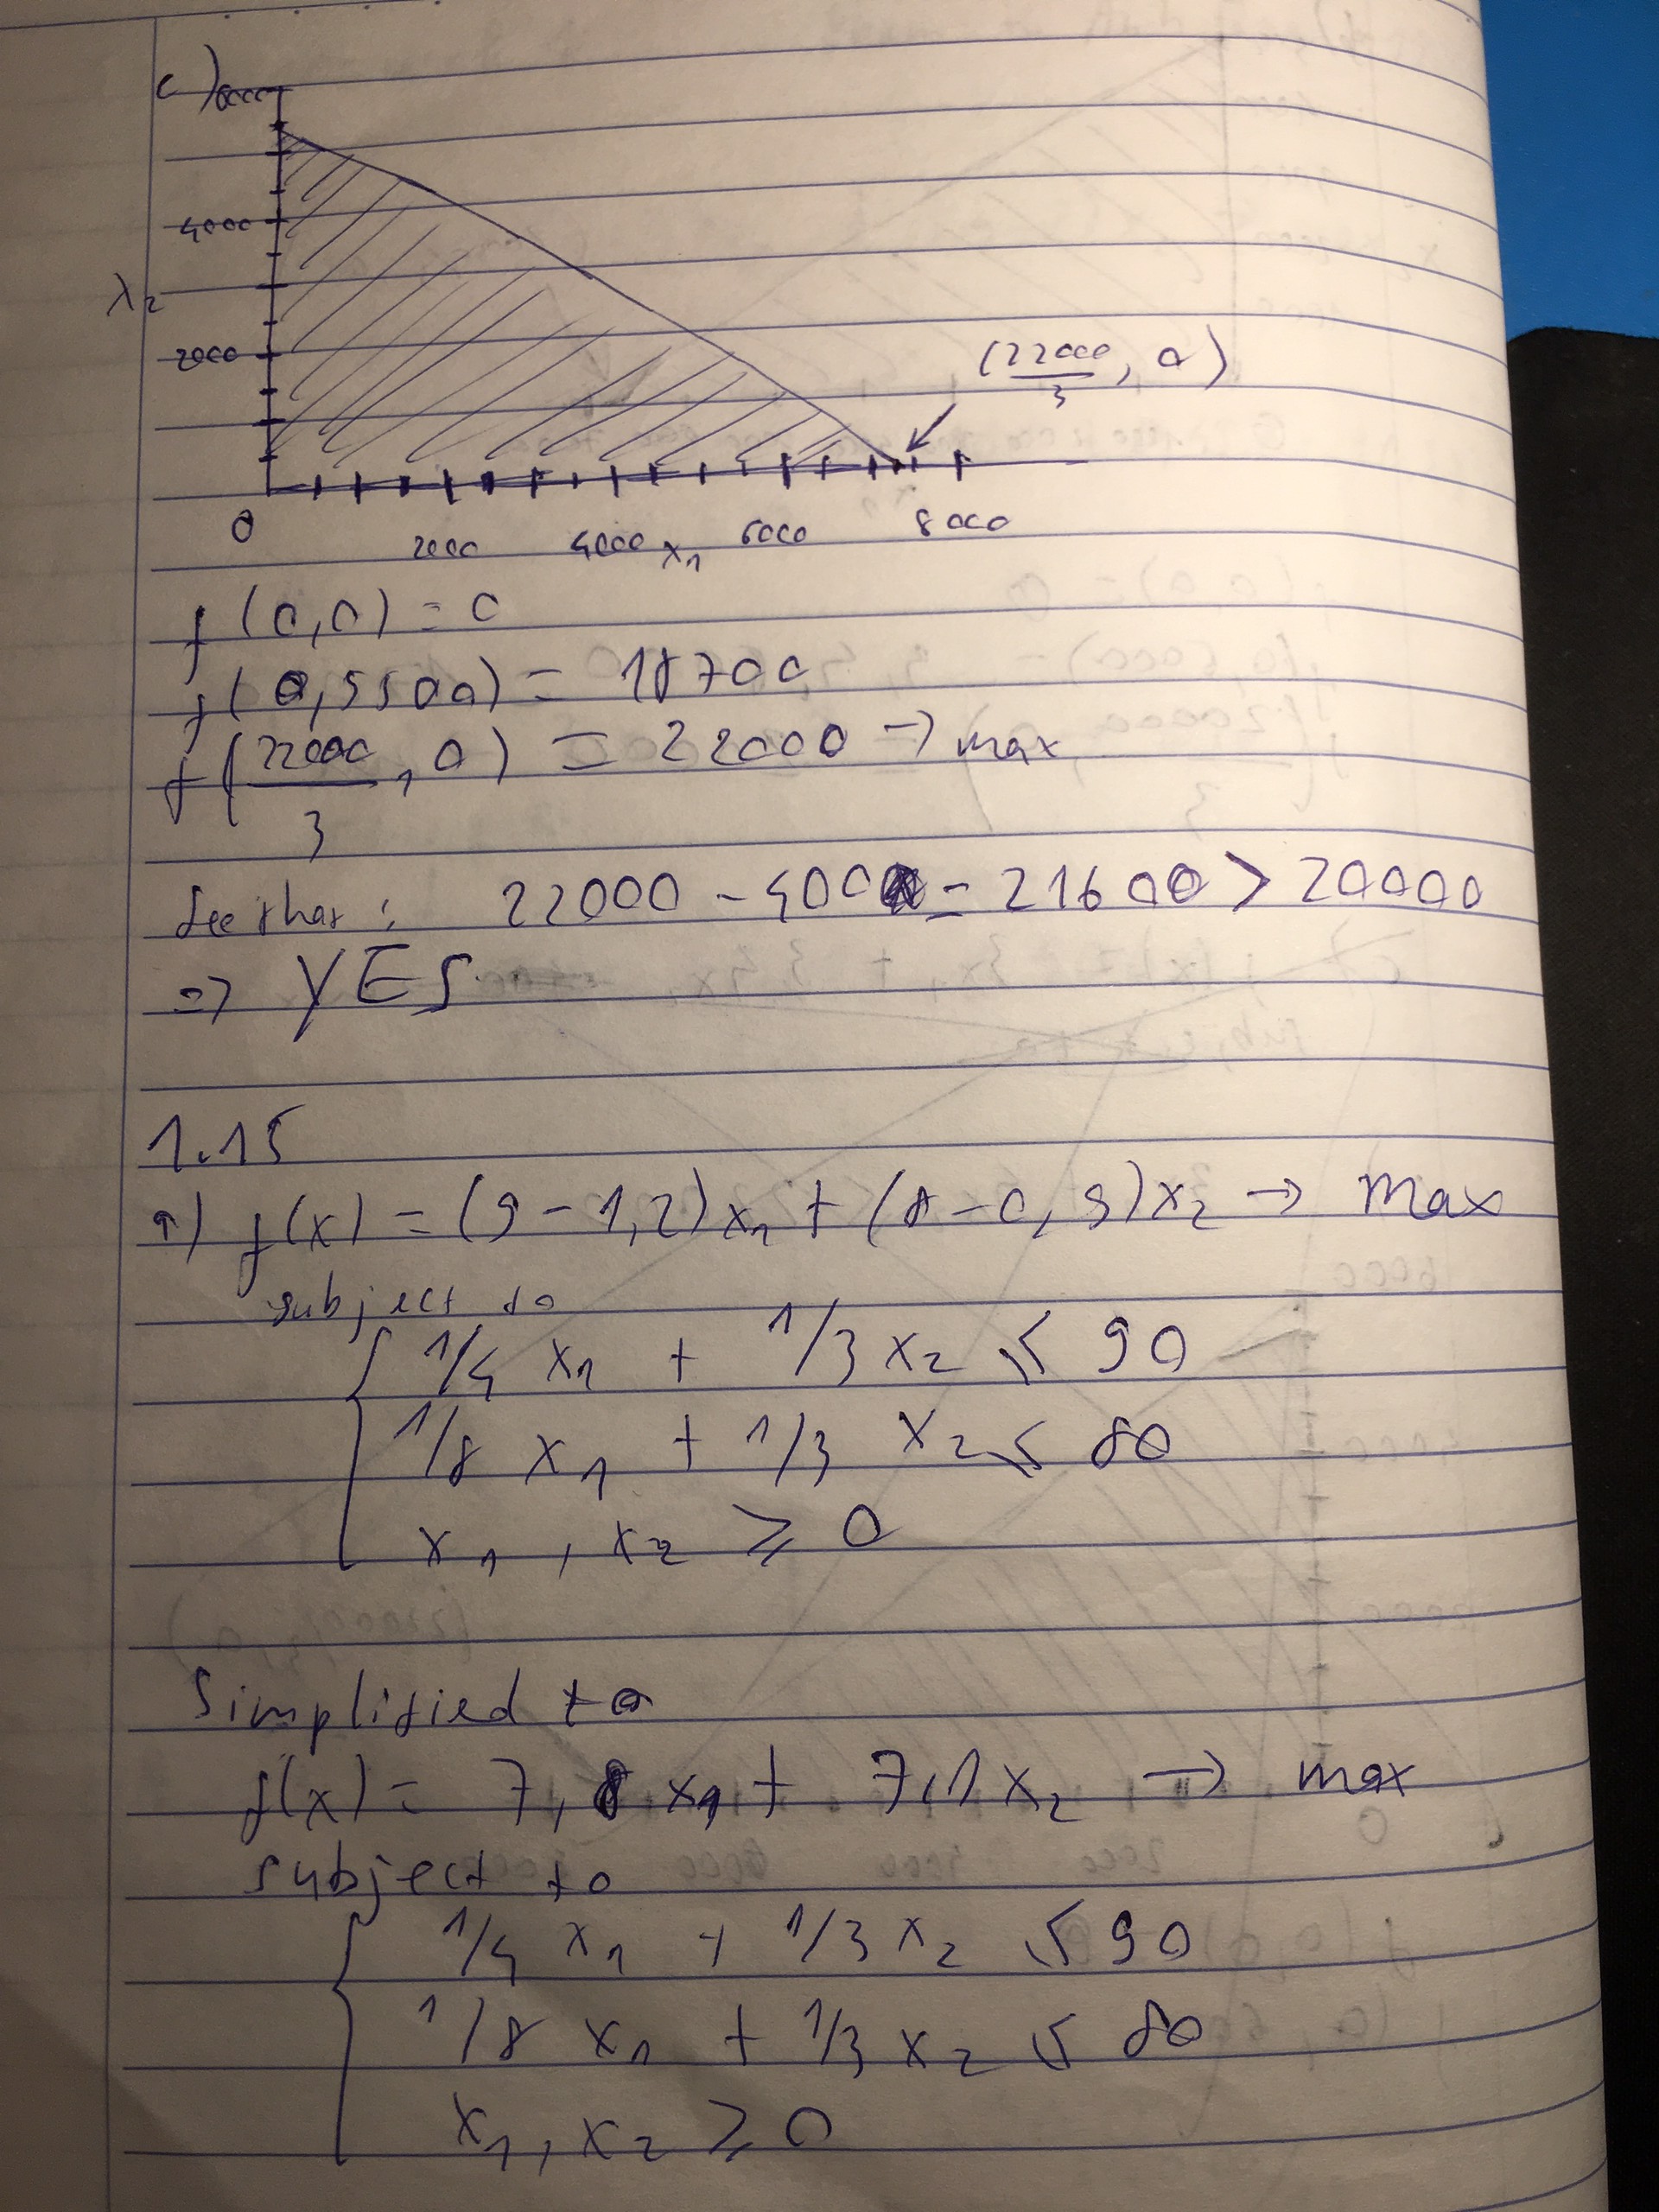 c)
6000
4000
x₂
2000
(22000/3, 0)
0 2000 4000 x₁ 6000 8000
f(0,0) = 0
f(0,5500) = 18700
f(22000/3, 0) = 22000 → max
See that: 22000 - 400 = 21600 > 20000
=> YES
1.15
a) f(x) = (9-1,2)x₁ + (8-0,9)x₂ → max
subject to
1/4 x₁ + 1/3 x₂ ≤ 90
1/8 x₁ + 1/3 x₂ ≤ 80
x₁, x₂ ≥ 0
Simplified to
f(x) = 7,8 x₁ + 7,1 x₂ → max
subject to
1/4 x₁ + 1/3 x₂ ≤ 90
1/8 x₁ + 1/3 x₂ ≤ 80
x₁, x₂ ≥ 0